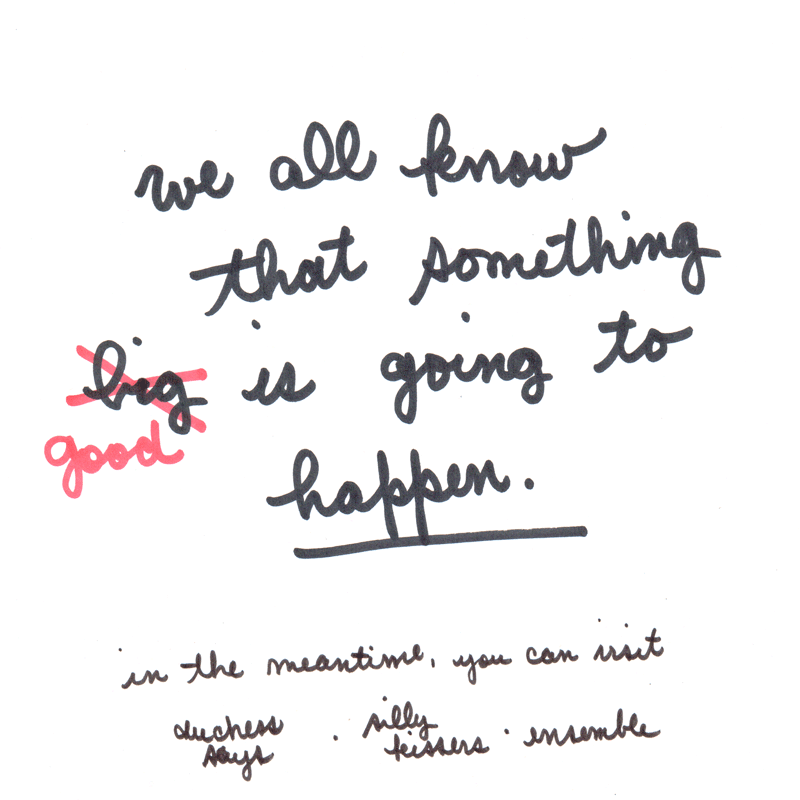 we all know
that something
big is going to
good
happen.
in the meantime, you can visit
duchess says · silly kissers · ensemble